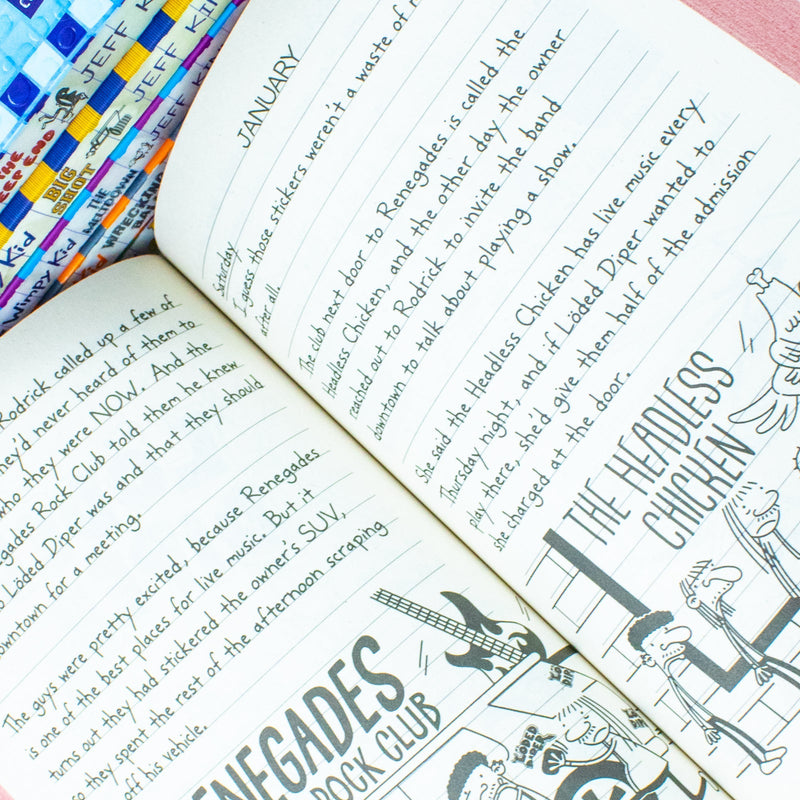 JEFF KIN
JEFF KIN
JEFF KIN
DEEP END
BIG
SHOT
THE
MELTDOWN
WRECKING
Kid
Wimpy Kid
Rodrick called up a few of
they'd never heard of them to
who they were NOW. And the
Renegades Rock Club told them he knew
Löded Diper was and that they should
downtown for a meeting.
The guys were pretty excited, because Renegades
is one of the best places for live music. But it
turns out they had stickered the owner's SUV,
so they spent the rest of the afternoon scraping
off his vehicle.
RENEGADES
ROCK CLUB
LÖDED
DIPER
JANUARY
Saturday
I guess those stickers weren't a waste of
after all.
The club next door to Renegades is called the
Headless Chicken, and the other day the owner
reached out to Rodrick to invite the band
downtown to talk about playing a show.
She said the Headless Chicken has live music every
Thursday night, and if Löded Diper wanted to
play there, she'd give them half of the admission
she charged at the door.
THE HEADLESS
CHICKEN